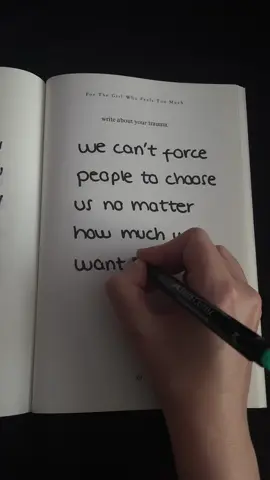 For The Girl Who Feels Too Much
write about your trauma.
we can't force
people to choose
us no matter
how much
want